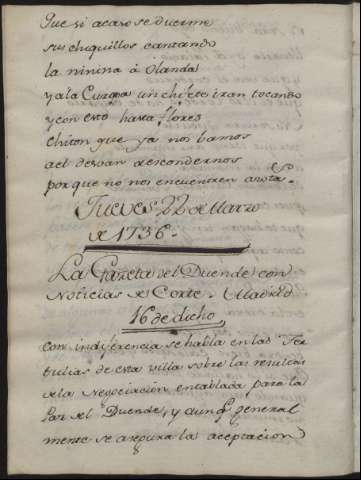 Que si acaso se duerme
sus chiquillos cantando
la ninina à Olanda
y a la Europa un chifle iran tocando
y con esto hasta flores
chiton que ya nos bamos
a el desvan a escondernos
por que no nos encuentren
Jueves 22 de Marzo
de 1736.
La Gazeta del Duende con
Noticias de Corte. Madrid
16 de dicho
Con indiferencia se habla en las Ter
tulias de esta villa sobre las resultas
de la Negociacion entablada para la
Paz del Duende, y aunq. general
mente se asegura la aceptacion